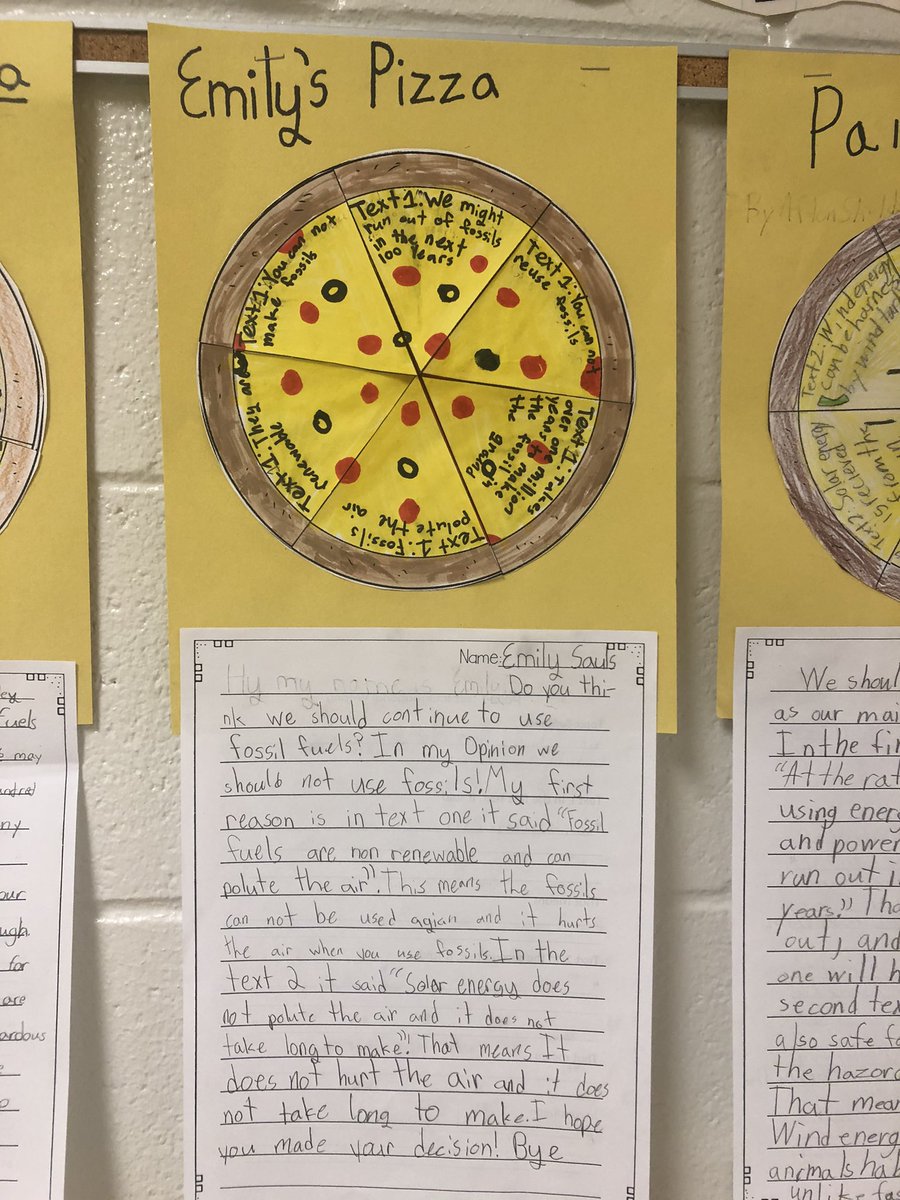 Emily's Pizza
Text 1: We might
run out of fossils
in the next
100 years
Text 1: You can not
reuse fossils
Text 1: Takes
over one million
years to make
the fossil
the
Text 1: Fossils
polute the air
Text 1: They are
renewable
Text 1: You can not
make fossils
Name: Emily Sauls
Hy my name is Emily Do you thi-
nk we should continue to use
fossil fuels? In my Opinion we
should not use fossils! My first
reason is in text one it said "Fossil
fuels are non renewable and can
polute the air". This means the fossils
can not be used agian and it hurts
the air when you use fossils. In the
text 2 it said "Solar energy does
not polute the air and it does not
take long to make". That means It
does not hurt the air and it does
not take long to make. I hope
you made your decision! Bye
a
ey
fuels
may
hundred
ny
our
ugh
for
are
ardous
Pai
Text 2: Wind energy
can be harnes
by wind tur
Text 2: Solar energy
is recieved
from the
We shoul
as our mai
In the fir
"At the rat
using energ
and power
run out i
years." Tha
out, and
one will h
second tex
also safe fo
the hazard
That mean
Wind energ
animals hab
unlike fos